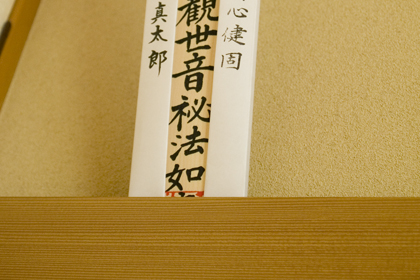 心健固
觀世音祕法如
真太郎